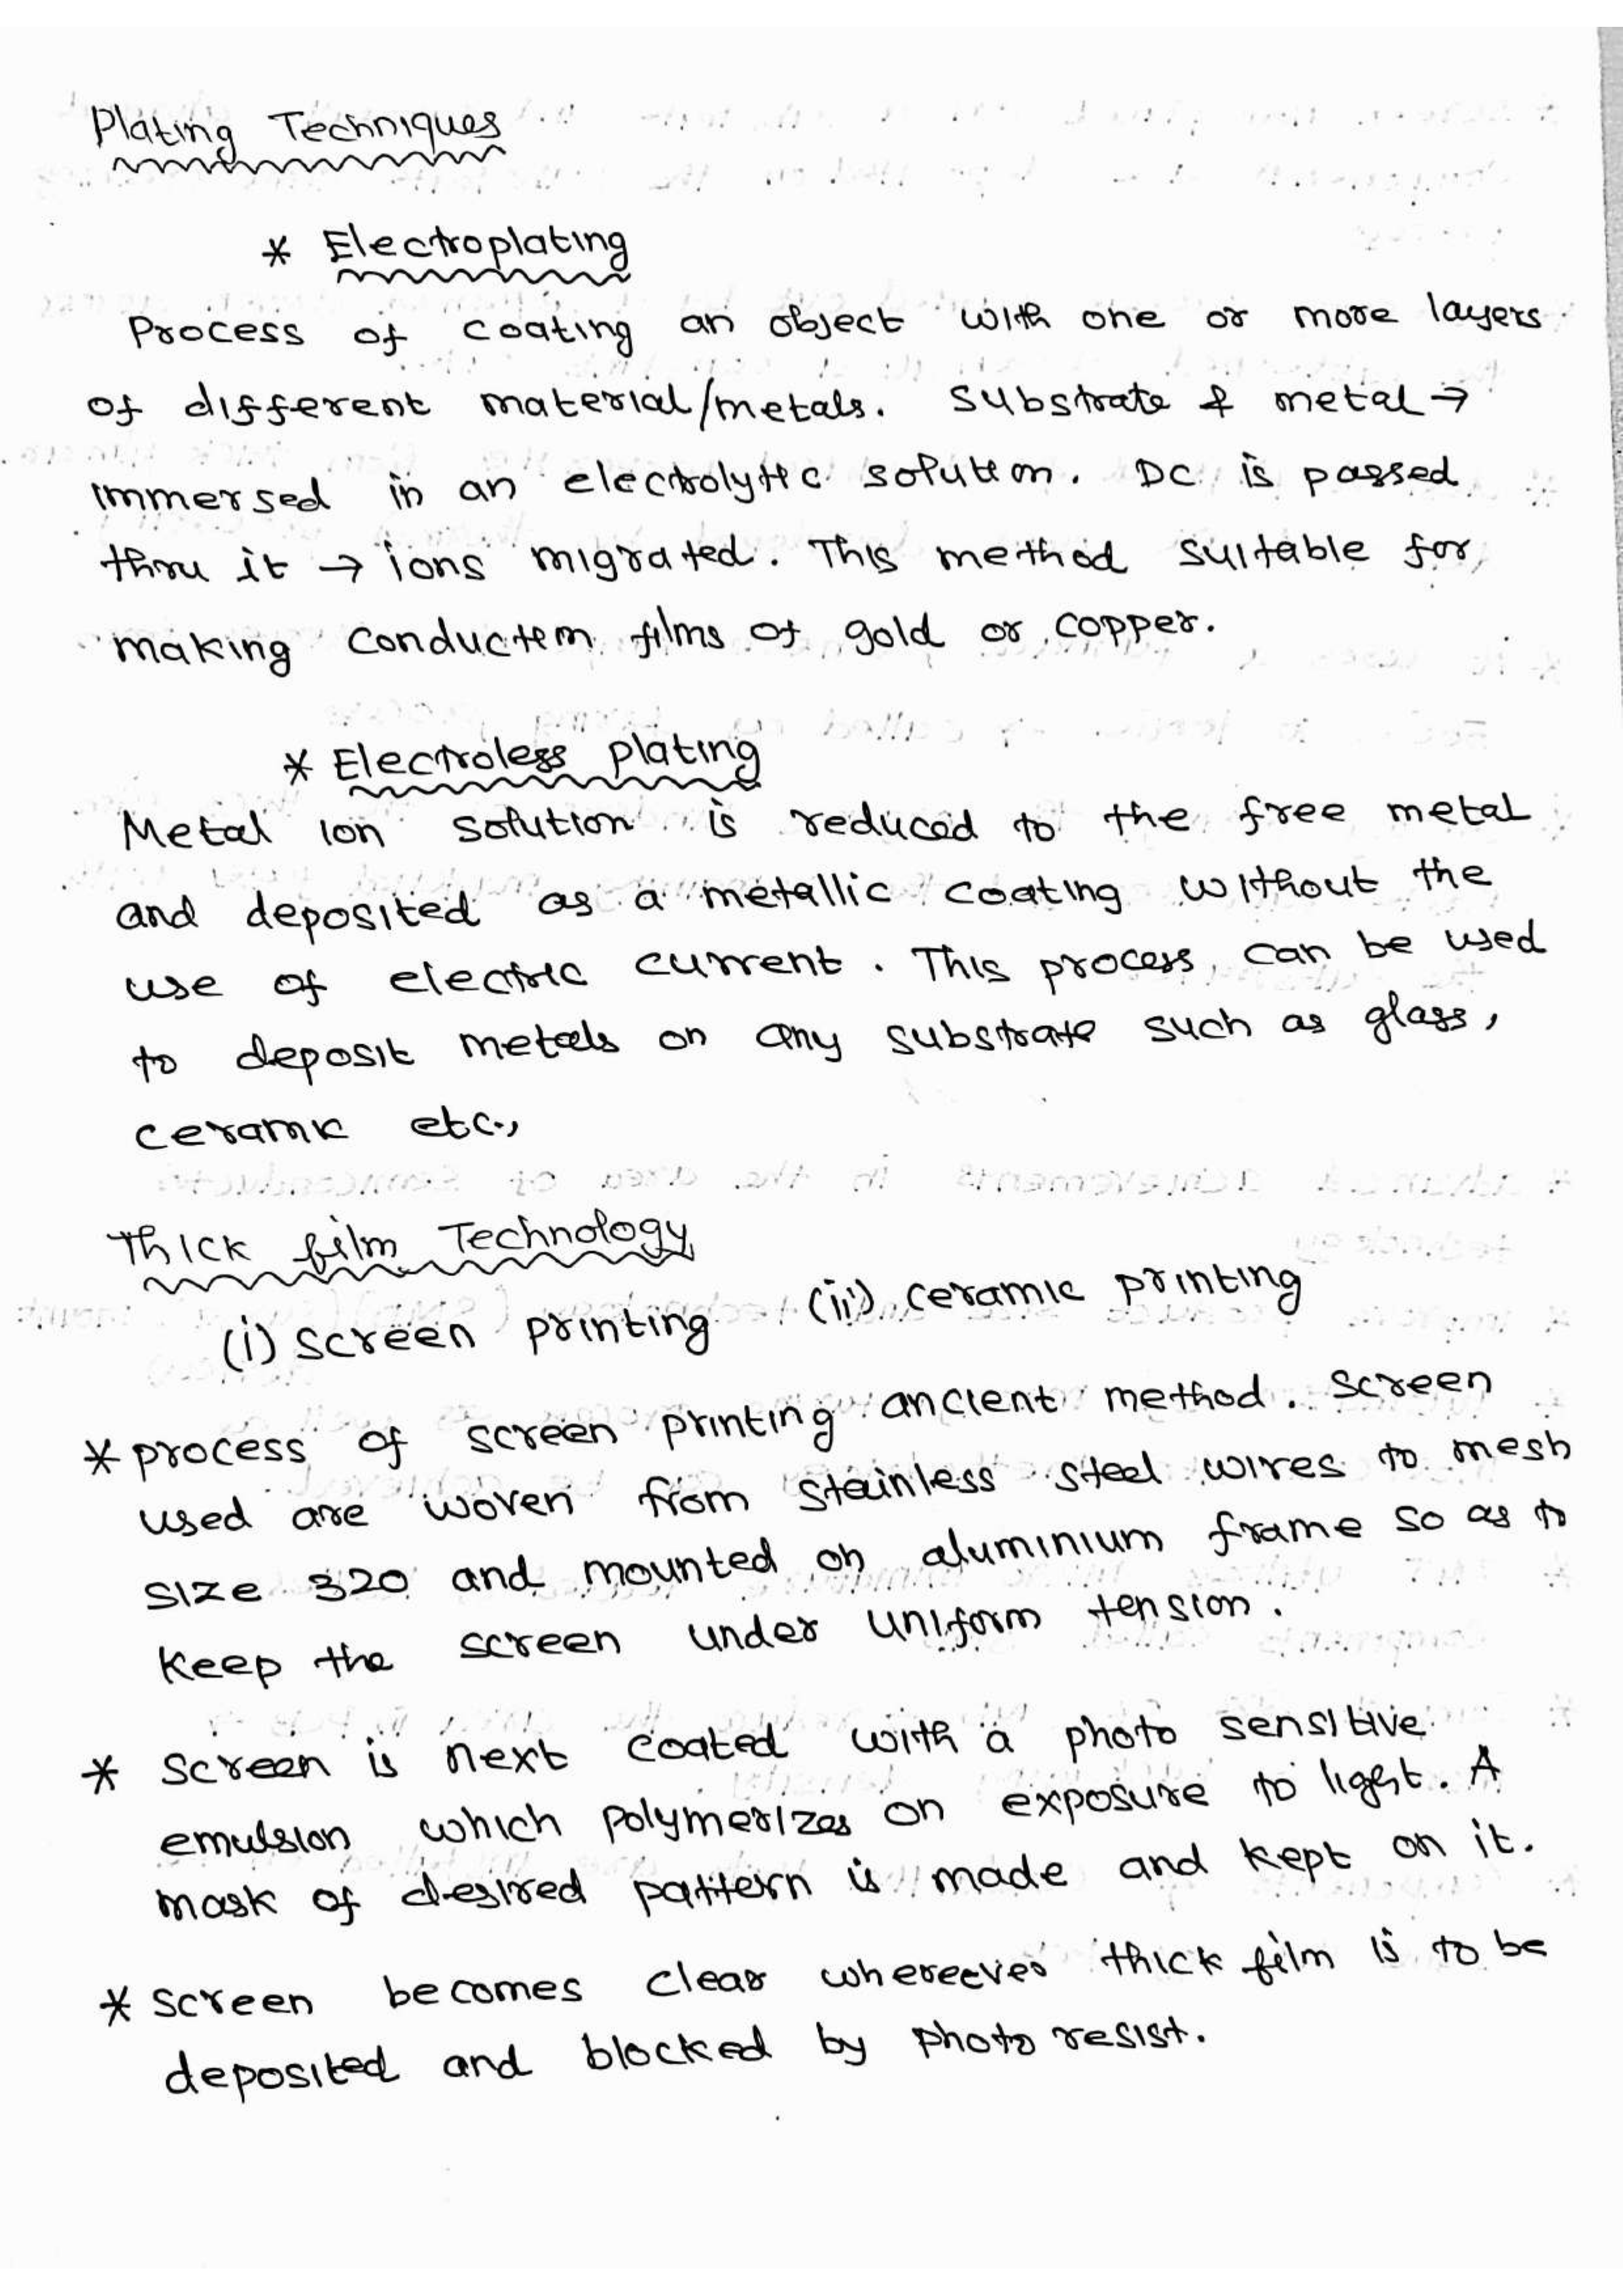 Plating Techniques
* Electroplating
Process of coating an object with one or more layers
of different material/metals. Substrate & metal →
immersed in an electrolytic solution. DC is passed
thru it → ions migrated. This method suitable for
making conduction films of gold or copper.
* Electroless plating
Metal ion solution is reduced to the free metal
and deposited as a metallic coating without the
use of electric current. This process, can be used
to deposit metals on any substrate such as glass,
ceramic etc.,
Thick film Technology
(i) screen printing (ii) ceramic printing
* process of screen printing ancient method. Screen
used are woven from stainless steel wires to mesh
size 320 and mounted on aluminium frame so as to
keep the screen under uniform tension.
* Screen is next coated with a photo sensitive
emulsion which polymerizes on exposure to light. A
mask of desired pattern is made and kept on it.
* screen becomes clear whereever thick film is to be
deposited and blocked by photo resist.